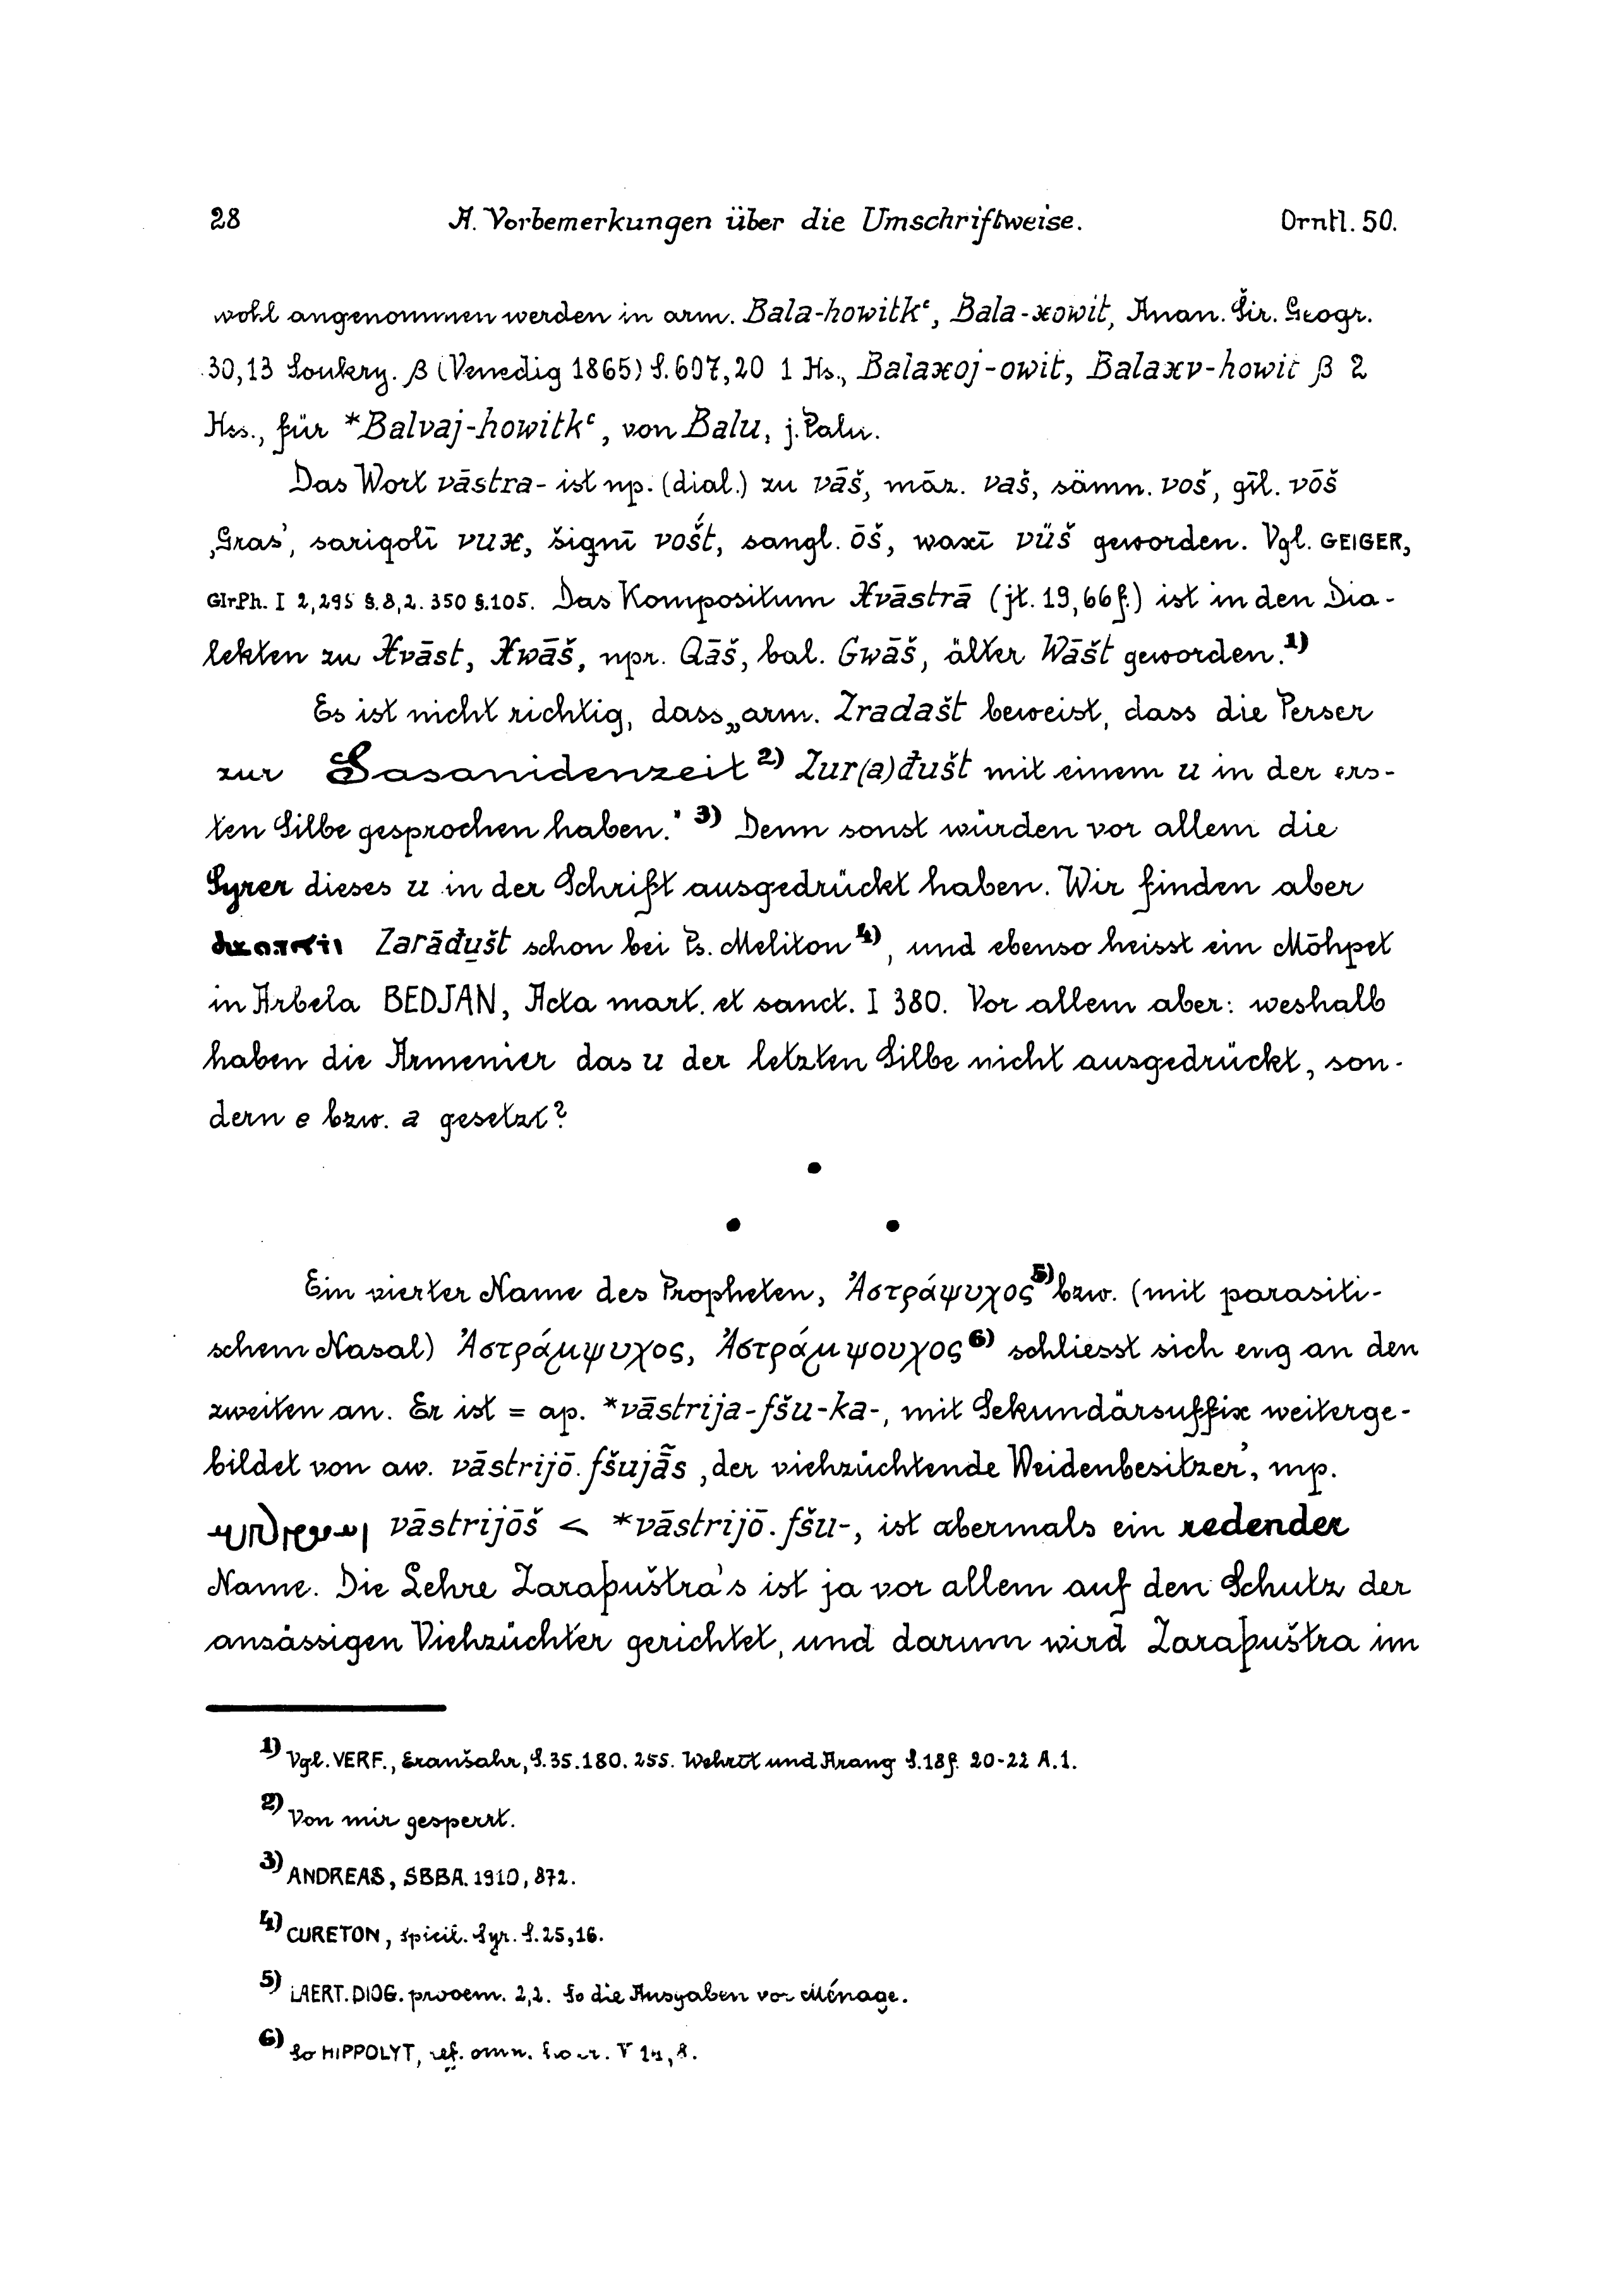 28 A. Vorbemerkungen über die Umschriftweise. Orntl. 50.
wohl angenommen werden in arm. Bala-howitkʿ, Bala-xowit, Anan. Šir. Geogr.
30,13 Soukry. β (Venedig 1865) S. 607,20 1 Hs., Balaxoj-owit, Balaxv-howit β 2
Hss., für *Balvaj-howitkʿ, von Balu, j. Palu.
Das Wort vāstra- ist np. (dial.) zu vāš, māz. vaš, sämn. voš, gīl. vōš
‚Gras‘, sariqolī vux, šignī vošt, sangl. ōš, waxī vüš geworden. Vgl. GEIGER,
GIrPh. I 2,295 §.8,2. 350 §.105. Das Kompositum Xvāstrā (jt. 19,66f.) ist in den Dia-
lekten zu Xvāst, Xwāš, npr. Qāš, bal. Gwāš, älter Wāšt geworden.1)
Es ist nicht richtig, dass „arm. Zradašt beweist, dass die Perser
zur Sasanidenzeit2) Zur(a)đušt mit einem u in der ers-
ten Silbe gesprochen haben.“ 3) Denn sonst würden vor allem die
Syrer dieses u in der Schrift ausgedrückt haben. Wir finden aber
Zarāđušt schon bei Ps. Meliton4), und ebenso heisst ein Mōhpet
in Arbela BEDJAN, Acta mart. et sanct. I 380. Vor allem aber: weshalb
haben die Armenier das u der letzten Silbe nicht ausgedrückt, son-
dern e bzw. a gesetzt?
Ein vierter Name des Propheten, Ἀστράψυχος5) bzw. (mit parasiti-
schem Nasal) Ἀστράμψυχος, Ἀστράμψουχος6) schliesst sich eng an den
zweiten an. Er ist = ap. *vāstrija-fšu-ka-, mit Sekundärsuffix weiterge-
bildet von aw. vāstrijō.fšują̄s ‚der viehzüchtende Weidenbesitzer‘, mp.
vāstrijōš < *vāstrijō.fšu-, ist abermals ein redender
Name. Die Lehre Zaraþuštra's ist ja vor allem auf den Schutz der
ansässigen Viehzüchter gerichtet, und darum wird Zaraþuštra im
1) Vgl. VERF., Eranšahr, S. 35. 180. 255. Wehrōt und Arang S. 18f. 20-22 A.1.
2) Von mir gesperrt.
3) ANDREAS, SBBA. 1910, 872.
4) CURETON, Spicil. Syr. S. 25,16.
5) LAERT. DIOG. prooem. 2,2. So die Ausgaben vor Ménage.
6) So HIPPOLYT, ref. omn. haer. V 14, 8.